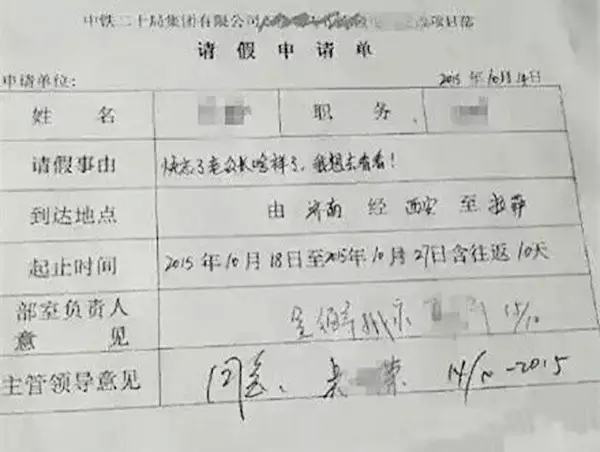 中铁二十局集团有限公司 项目部
请假申请单
申请单位： 2015年10月14日
姓名 职务
请假事由 快忘了老公长啥样了，我想去看看！
到达地点 由 济南 经 西安 至 拉萨
起止时间 2015年10月18日至2015年10月27日含往返10天
部室负责人
意见 15/10
主管领导意见 同意. 14/10-2015